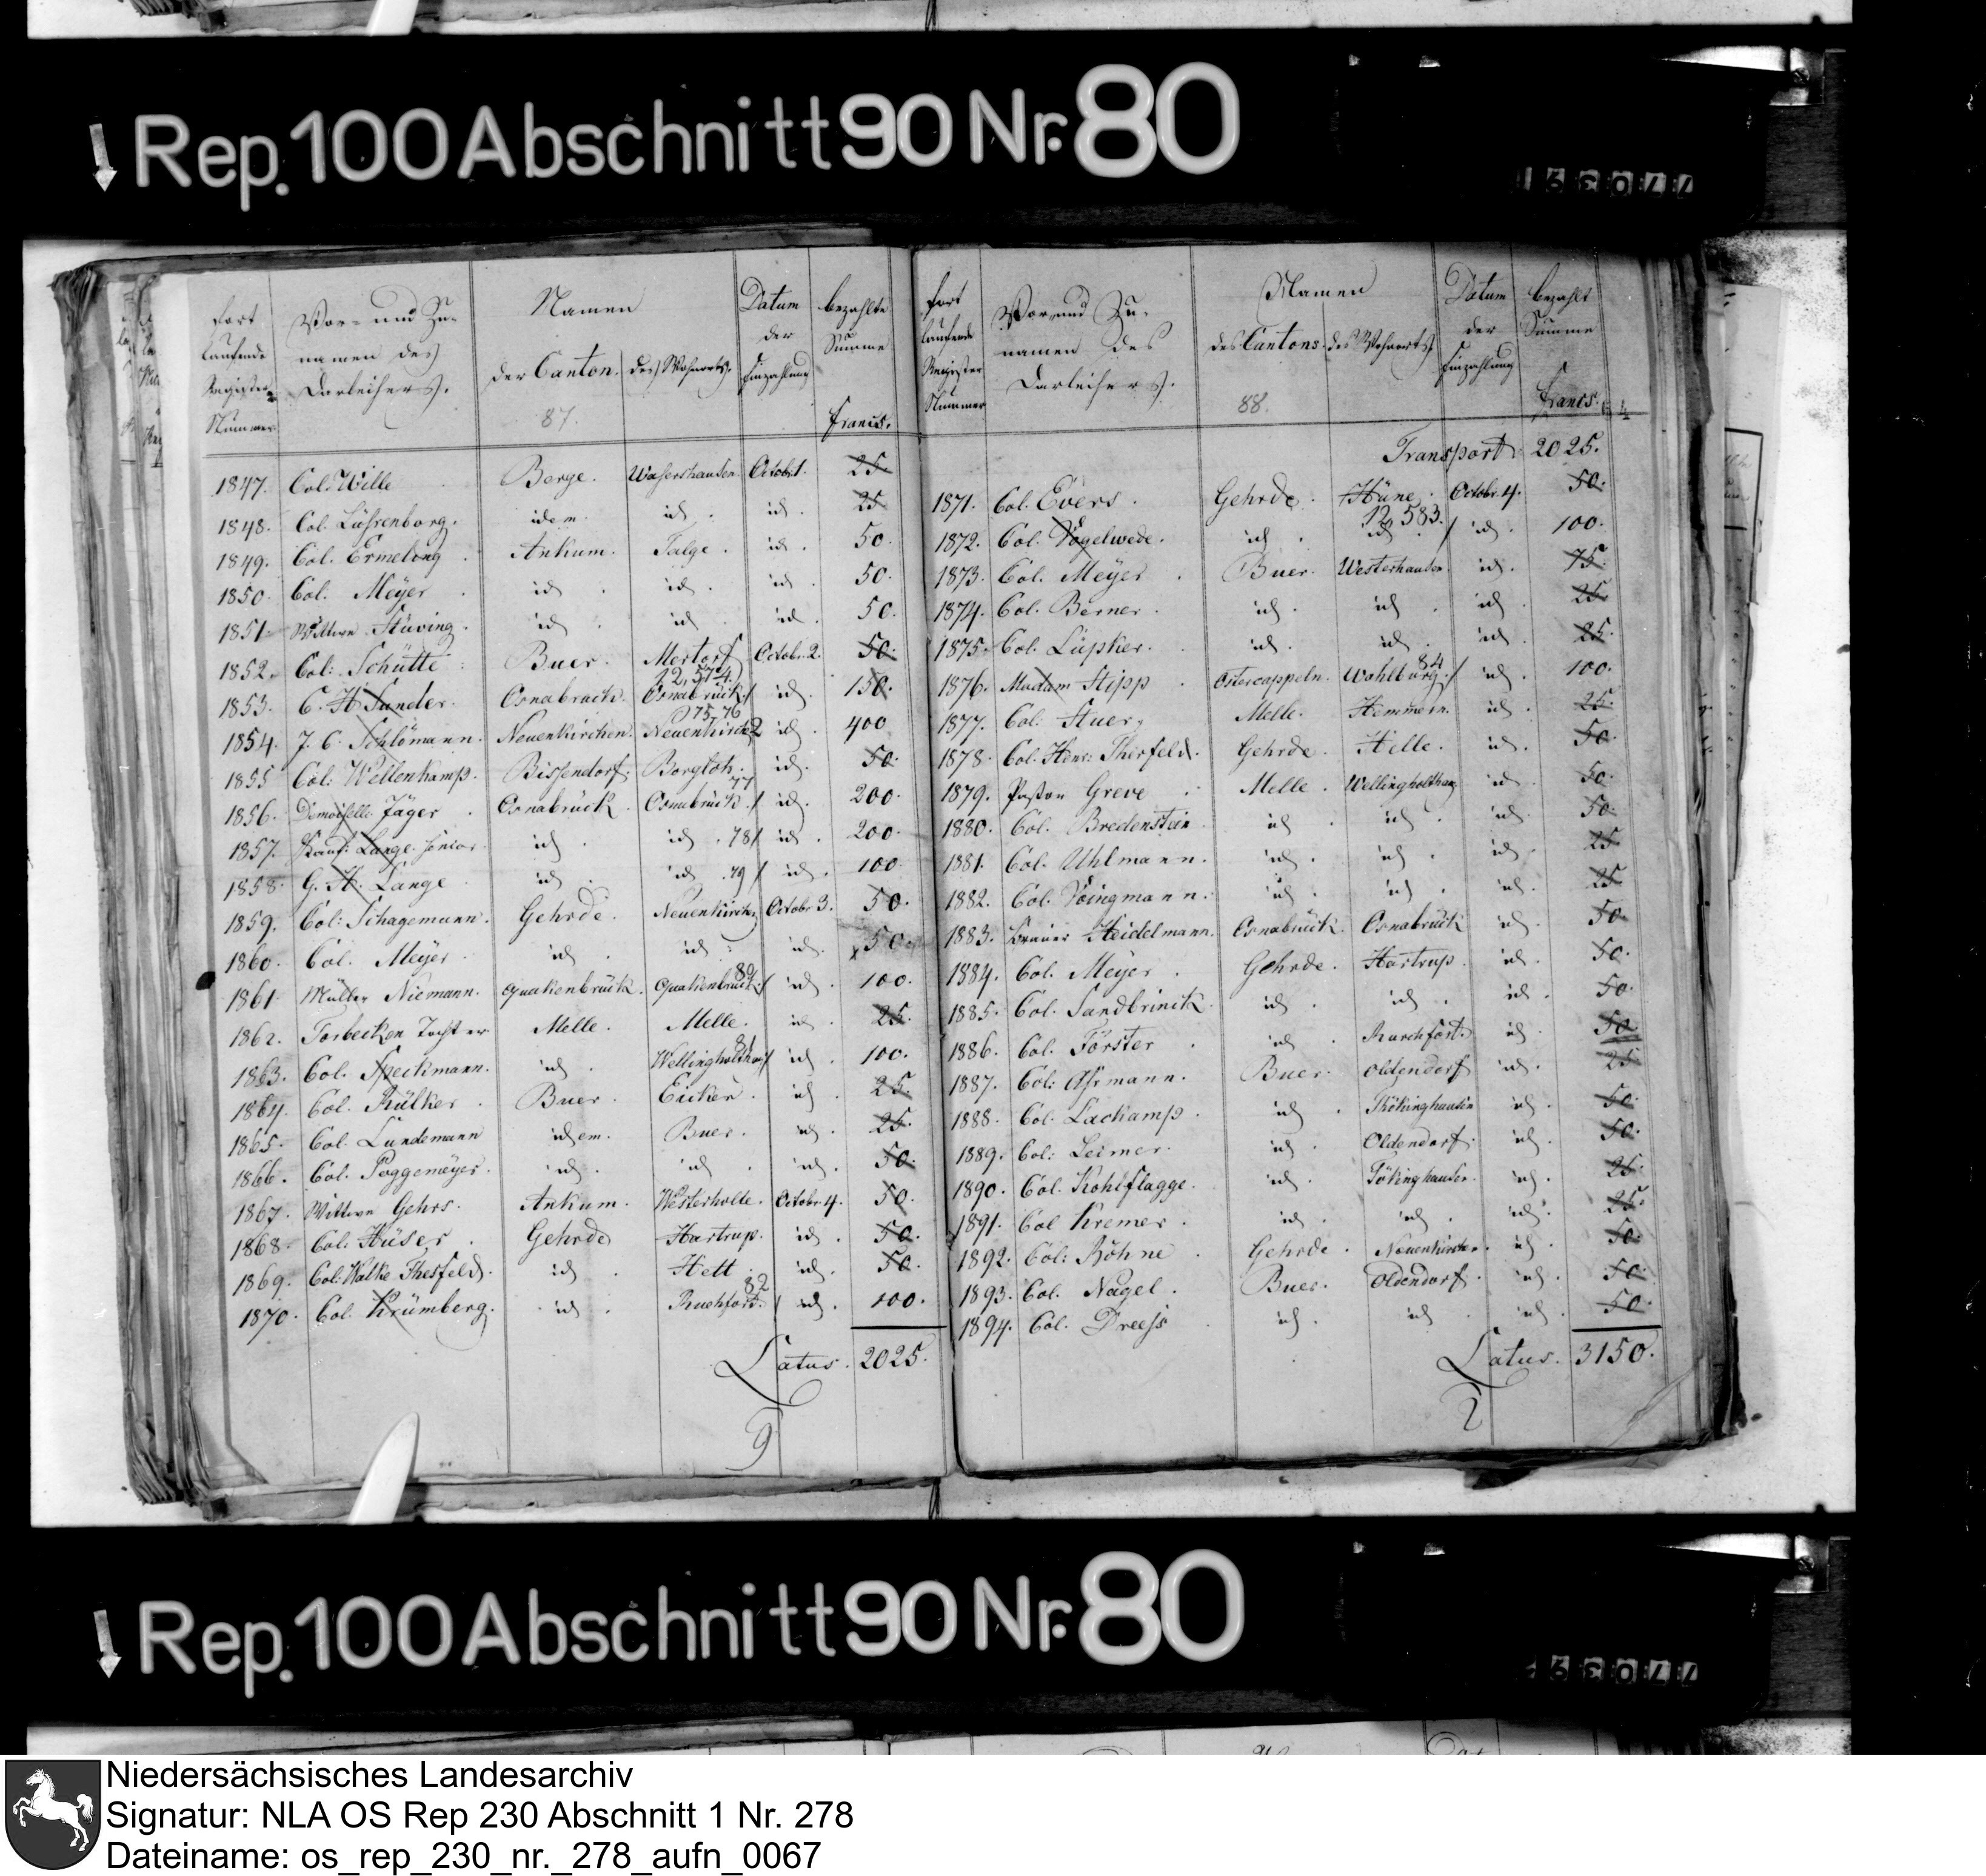 Rep. 100 Abschnitt 90 Nr. 80
Fort laufende Register Nummer
Vor- und Zunamen des Darleihers.
Namen
der Canton.
des Wohnorts.
Datum der Einzahlung
bezahlte Summe
francs.
87.
1847. Col. Wille Berge. Octobr. 1. 25.
1848. Col. Lührenborg. idem. id. id. 25
1849. Col. Ermeling. Ankum. Talge. id. 50.
1850. Col. Meyer. id. id. id. 50.
1851. Wittwe Stüving. id. id. id. 50.
1852. Col. Schütte. Buer. Octobr. 2. 50.
12,574.
1853. C. H. Sunder. Osnabrück. Osnabrück. id. 150.
75,76
1854. J. C. Schlömann. Neuenkirchen. Neuenkirch id. 400
1855 Col. Wellenkamp. Bissendorf. Borgloh. id. 50.
77
1856. Demoiselle Jäger. Osnabrück. Osnabrück. id. 200.
1857. Kauf. Lange. senior. id. id. 78 id. 200.
1858. G. H. Lange id. id. 79 id. 100
1859. Col. Schagemann. Gehrde. Neuenkirchen Octobr. 3. 50.
1860. Col. Meyer. id. id. id. 50.
80
1861. Müller Niemann. Quakenbrück. Quakenbrück. id. 100.
1862. Torbecken Tochter Melle. Melle. id. 25.
81
1863. Col. Speckmann. id. Wellingholthau id. 100.
1864. Col. Rülker. Buer. Eicken. id. 25.
1865. Col. Lundemann idem. Buer. id. 25.
1866. Col. Poggemeyer. id. id. id. 50.
1867. Wittwe Gehrs. Ankum. Westerholte. Octobr. 4. 50.
1868. Col. Hüser. Gehrde Hartrup. id. 50.
1869. Col. Walke Thesfeld. id. Helt. id. 50.
82
1870. Col. Krümberg. id. id. 100.
Latus. 2025.
9
Fort laufende Register Nummer
Vor und Zunamen des Darleihers.
Namen
des Cantons.
des Wohnorts.
Datum der Einzahlung
bezahlt Summe
francs.
88.
Transport. 2025.
1871. Col. Evers. Gehrde. Hüne. Octobr. 4. 50.
12,583.
1872. Col. Vogelwede. id. id. id. 100.
1873. Col. Meyer. Buer. Westerhausen. id. 75.
1874. Col. Berner. id. id. id. 25.
1875. Col. Lüpker. id. id. id. 25.
84
1876. Madam Stipp. Ostercappeln. Wahlburg. id. 100.
1877. Col. Stuer. Melle. id. 25.
1878. Col. Henr. Therfeld. Gehrde. Helle. id. 50.
1879. Pastor Greve. Melle. Wellingholthau id. 50.
1880. Col. Bredenstein id. id. id. 50.
1881. Col. Uhlmann. id. id. id. 25
1882. Col. Voingmann. id. id. id. 25
1883. Heidelmann. Osnabrück. Osnabrück id. 50.
1884. Col. Meyer. Gehrde. Hartrup. id. 50.
1885. Col. Sandbrinck. id. id. id. 50.
1886. Col. Förster id. id. 50.
1887. Col. Asmann. Buer. Oldendorf id. 25
1888. Col. Lackamp. id. id. 50.
1889. Col. Leimer. id. Oldendorf. id. 50.
1890. Col. Kohlflagge. id. id. 25.
1891. Col Kremer. id. id. id. 25.
1892. Col. Böhne Gehrde. Neuenkirchen. id. 50.
1893. Col. Nagel. Buer. Oldendorf. id. 50.
1894. Col. Dreess id. id. id. 50.
Latus. 3150.
Rep. 100 Abschnitt 90 Nr. 80
Niedersächsisches Landesarchiv
Signatur: NLA OS Rep 230 Abschnitt 1 Nr. 278
Dateiname: os_rep_230_nr._278_aufn_0067